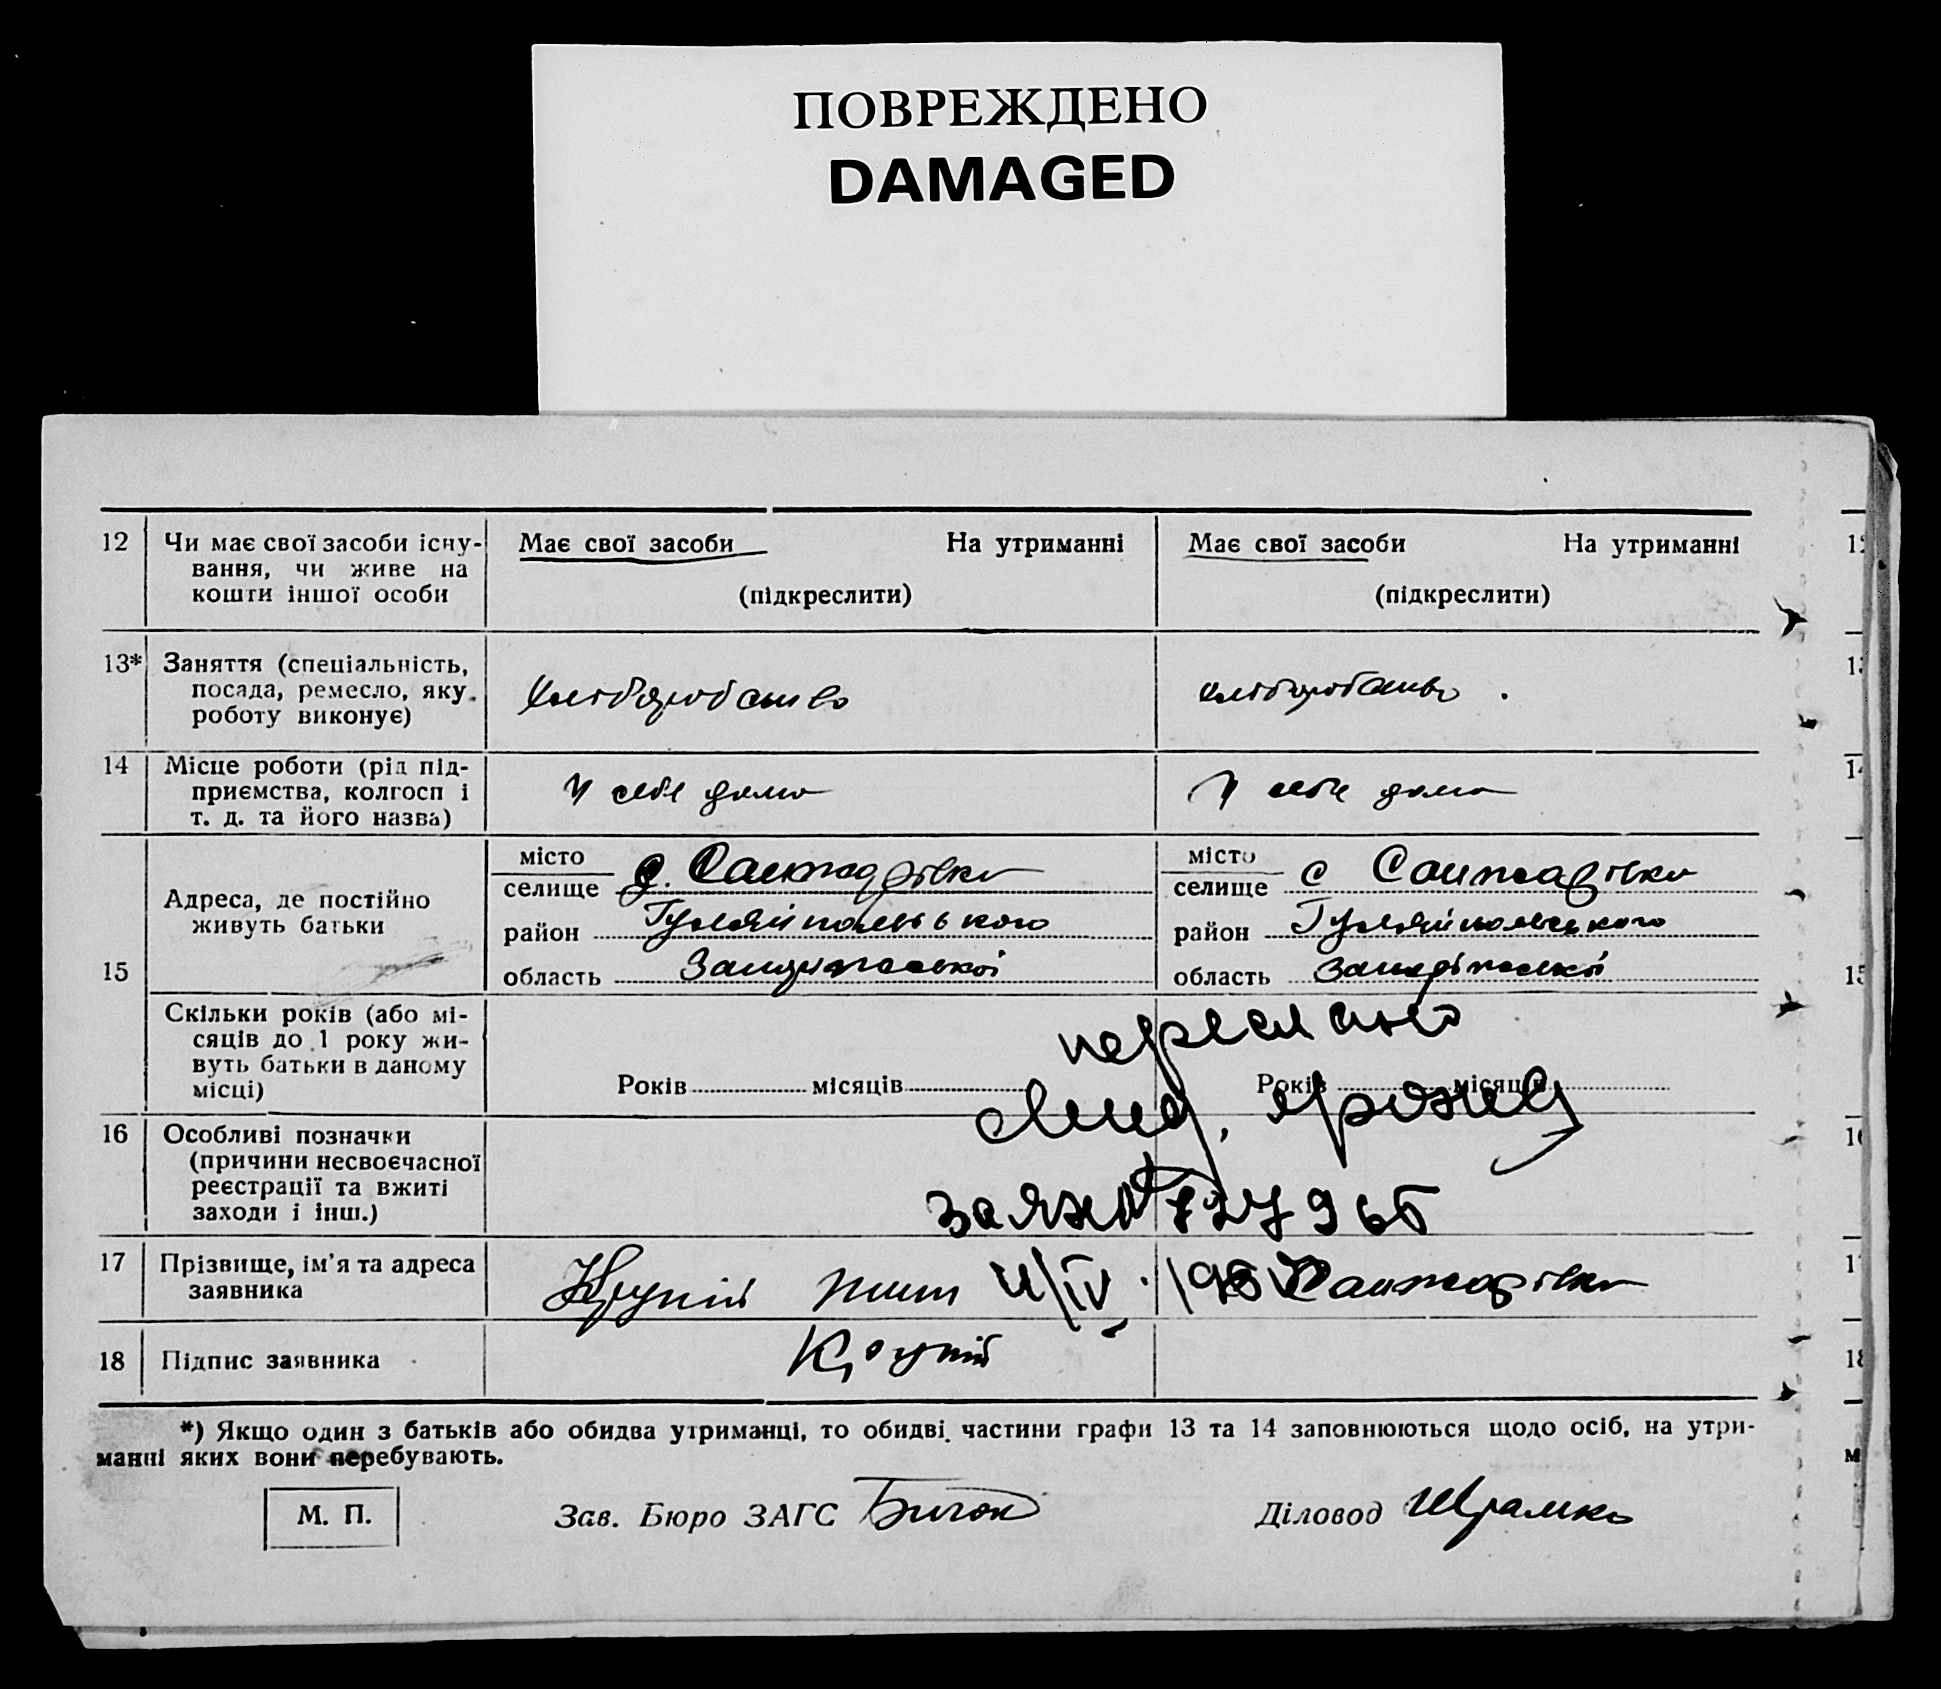 ПОВРЕЖДЕНО
DAMAGED
12 Чи має свої засоби існу-
вання, чи живе на
кошти іншої особи
Має свої засоби На утриманні
(підкреслити)
Має свої засоби На утриманні
(підкреслити)
13* Заняття (спеціальність,
посада, ремесло, яку
роботу виконує)
хліборобство
хліборобство
14 Місце роботи (рід під-
приємства, колгосп і
т. д. та його назва)
у себе дома
у себе дома
15
Адреса, де постійно
живуть батьки
місто
селище с. Санжарівка
район Гуляйпольського
область Запорізької
місто
селище с Санжарівка
район Гуляйпольського
область Запорізької
Скільки років (або мі-
сяців до 1 року жи-
вуть батьки в даному
місці)
Років місяців
Років місяців
16 Особливі позначки
(причини несвоєчасної
реєстрації та вжиті
заходи і інш.)
17 Прізвище, ім'я та адреса
заявника
Крупій Санжарівка
18 Підпис заявника
Крупій
*) Якщо один з батьків або обидва утриманці, то обидві частини графи 13 та 14 заповнюються щодо осіб, на утри-
манні яких вони перебувають.
М. П.
Зав. Бюро ЗАГС
Діловод Шрамко